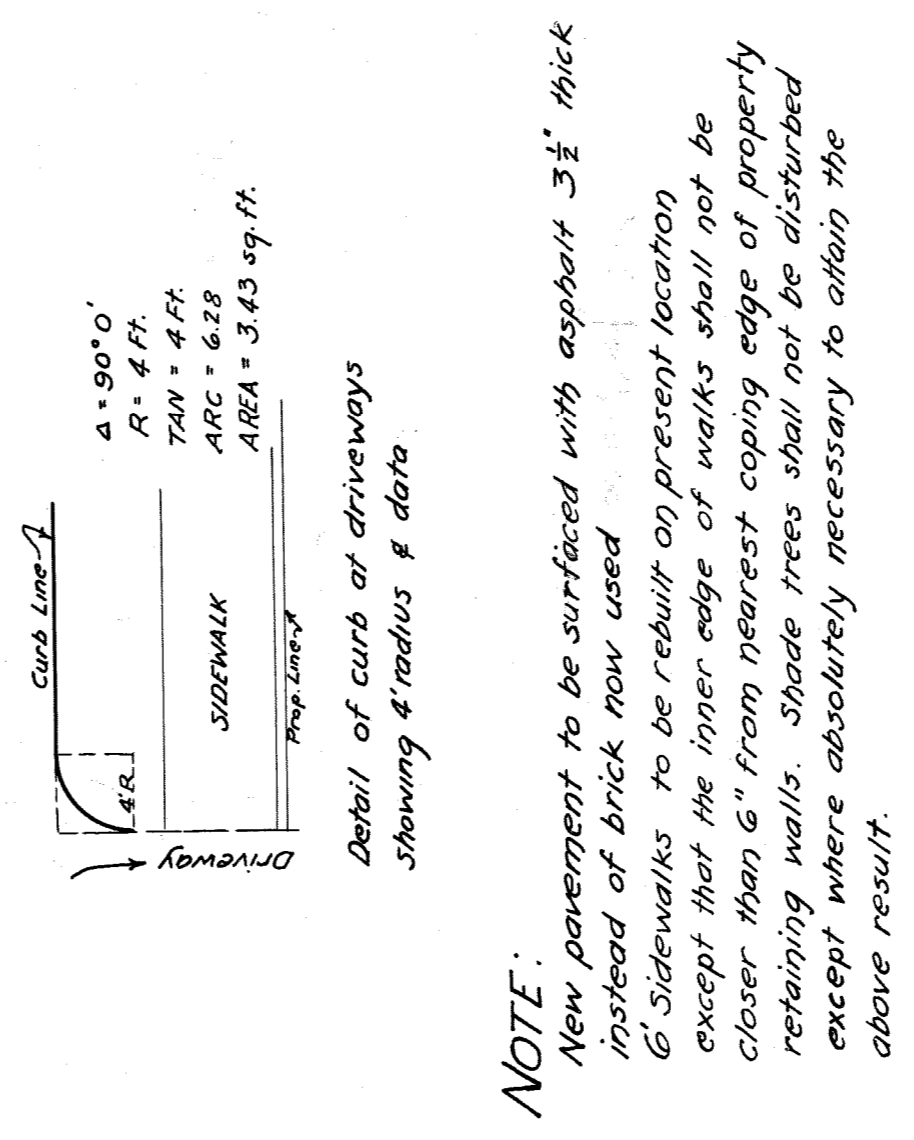 Curb Line
4'R.
Driveway
SIDEWALK
Prop. Line
Δ = 90° 0'
R = 4 Ft.
TAN = 4 Ft.
ARC = 6.28
AREA = 3.43 sq. ft.
Detail of curb at driveways
showing 4' radius & data
NOTE:
New pavement to be surfaced with asphalt 3 1/2" thick
instead of brick now used
6' Sidewalks to be rebuilt on present location
except that the inner edge of walks shall not be
closer than 6" from nearest coping edge of property
retaining walls. Shade trees shall not be disturbed
except where absolutely necessary to attain the
above result.